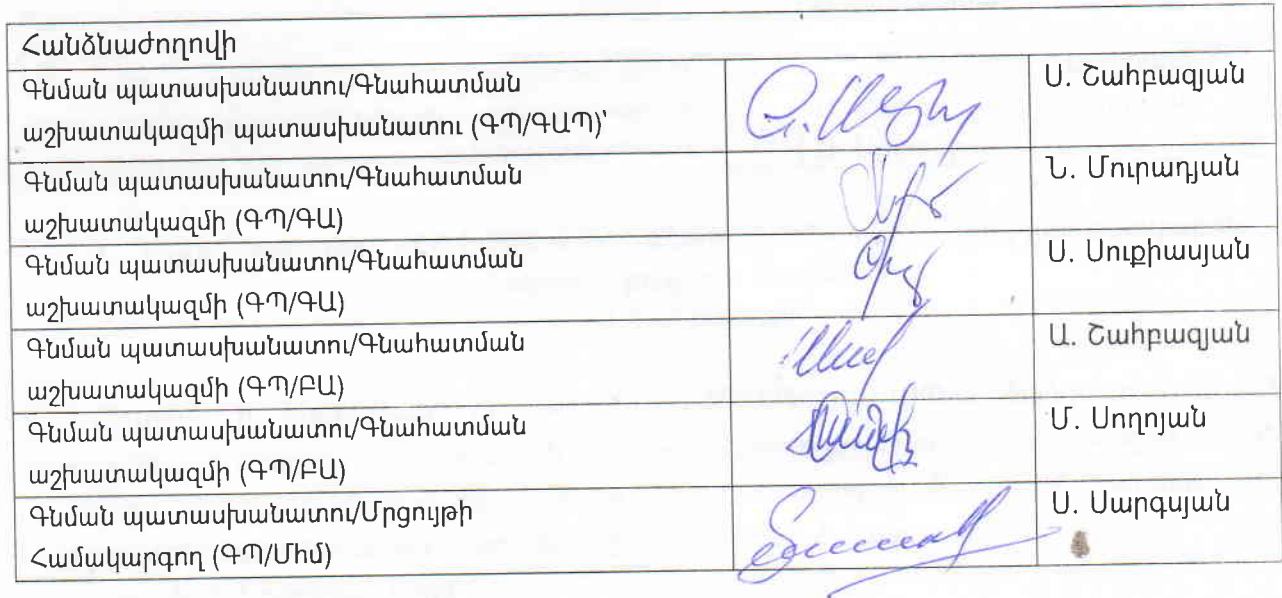 Հանձնաժողովի
Գնման պատասխանատու/Գնահատման
աշխատակազմի պատասխանատու (ԳՊ/ԳԱՊ)՝
Ս. Շահբազյան
Գնման պատասխանատու/Գնահատման
աշխատակազմի (ԳՊ/ԳԱ)
Ն. Մուրադյան
Գնման պատասխանատու/Գնահատման
աշխատակազմի (ԳՊ/ԳԱ)
Ս. Սուքիասյան
Գնման պատասխանատու/Գնահատման
աշխատակազմի (ԳՊ/ԲԱ)
Ա. Շահբազյան
Գնման պատասխանատու/Գնահատման
աշխատակազմի (ԳՊ/ԲԱ)
Մ. Սողոյան
Գնման պատասխանատու/Մրցույթի
Համակարգող (ԳՊ/Մհմ)
Ս. Սարգսյան